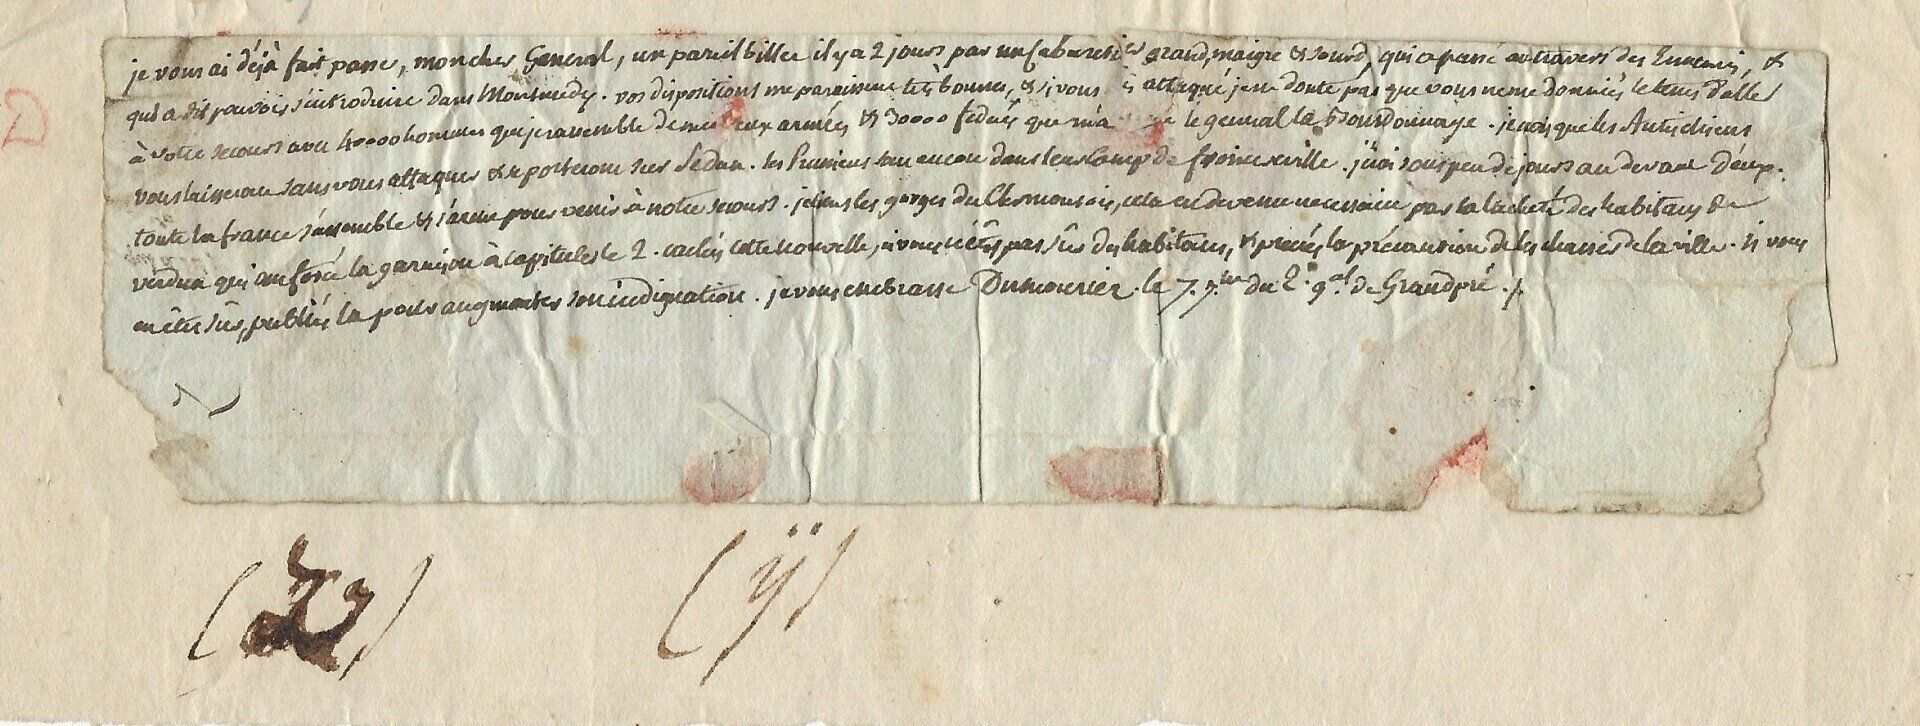 je vous ai déjà fait passer, mon cher Général, un pareil billet il y a 2 jours par un Cabaretier grand, maigre & sourd, qui a passé au travers des Ennemis, &
qui a dit pouvoir s'introduire dans Montmedy. vos dispositions me paroissent très bonnes, & si vous êtes attaqué je ne doute pas que vous ne me donniés le tems d'aller
à votre secours avec 40000 hommes que je rassemble de mes deux armées & 30000 fedérés que m'a le général la Bourdonnaye. je crois que les Autrichiens
vous laisseront sans vous attaquer & se porteront sur Sedan. les Prussiens sont encor dans leur Camp de fromereville. j'irai sous peu de jours au devant d'eux.
toute la france s'assemble & s'arme pour venir à notre secours. je tiens les gorges du Clermontois, cela est devenu necessaire par la lacheté des habitans de
verdun qui ont forcé la garnison à capituler le 2. cachés cette nouvelle, si vous n'êtes pas sûr des habitans, & prenés la précaution de les chasser de la ville. si vous
en êtes sûr, publiés la pour augmenter son indignation. je vous embrasse Dumouriez. le 7. 7.bre du Q. g.al de Grandpré ./.
D
(Z)
(ÿ)